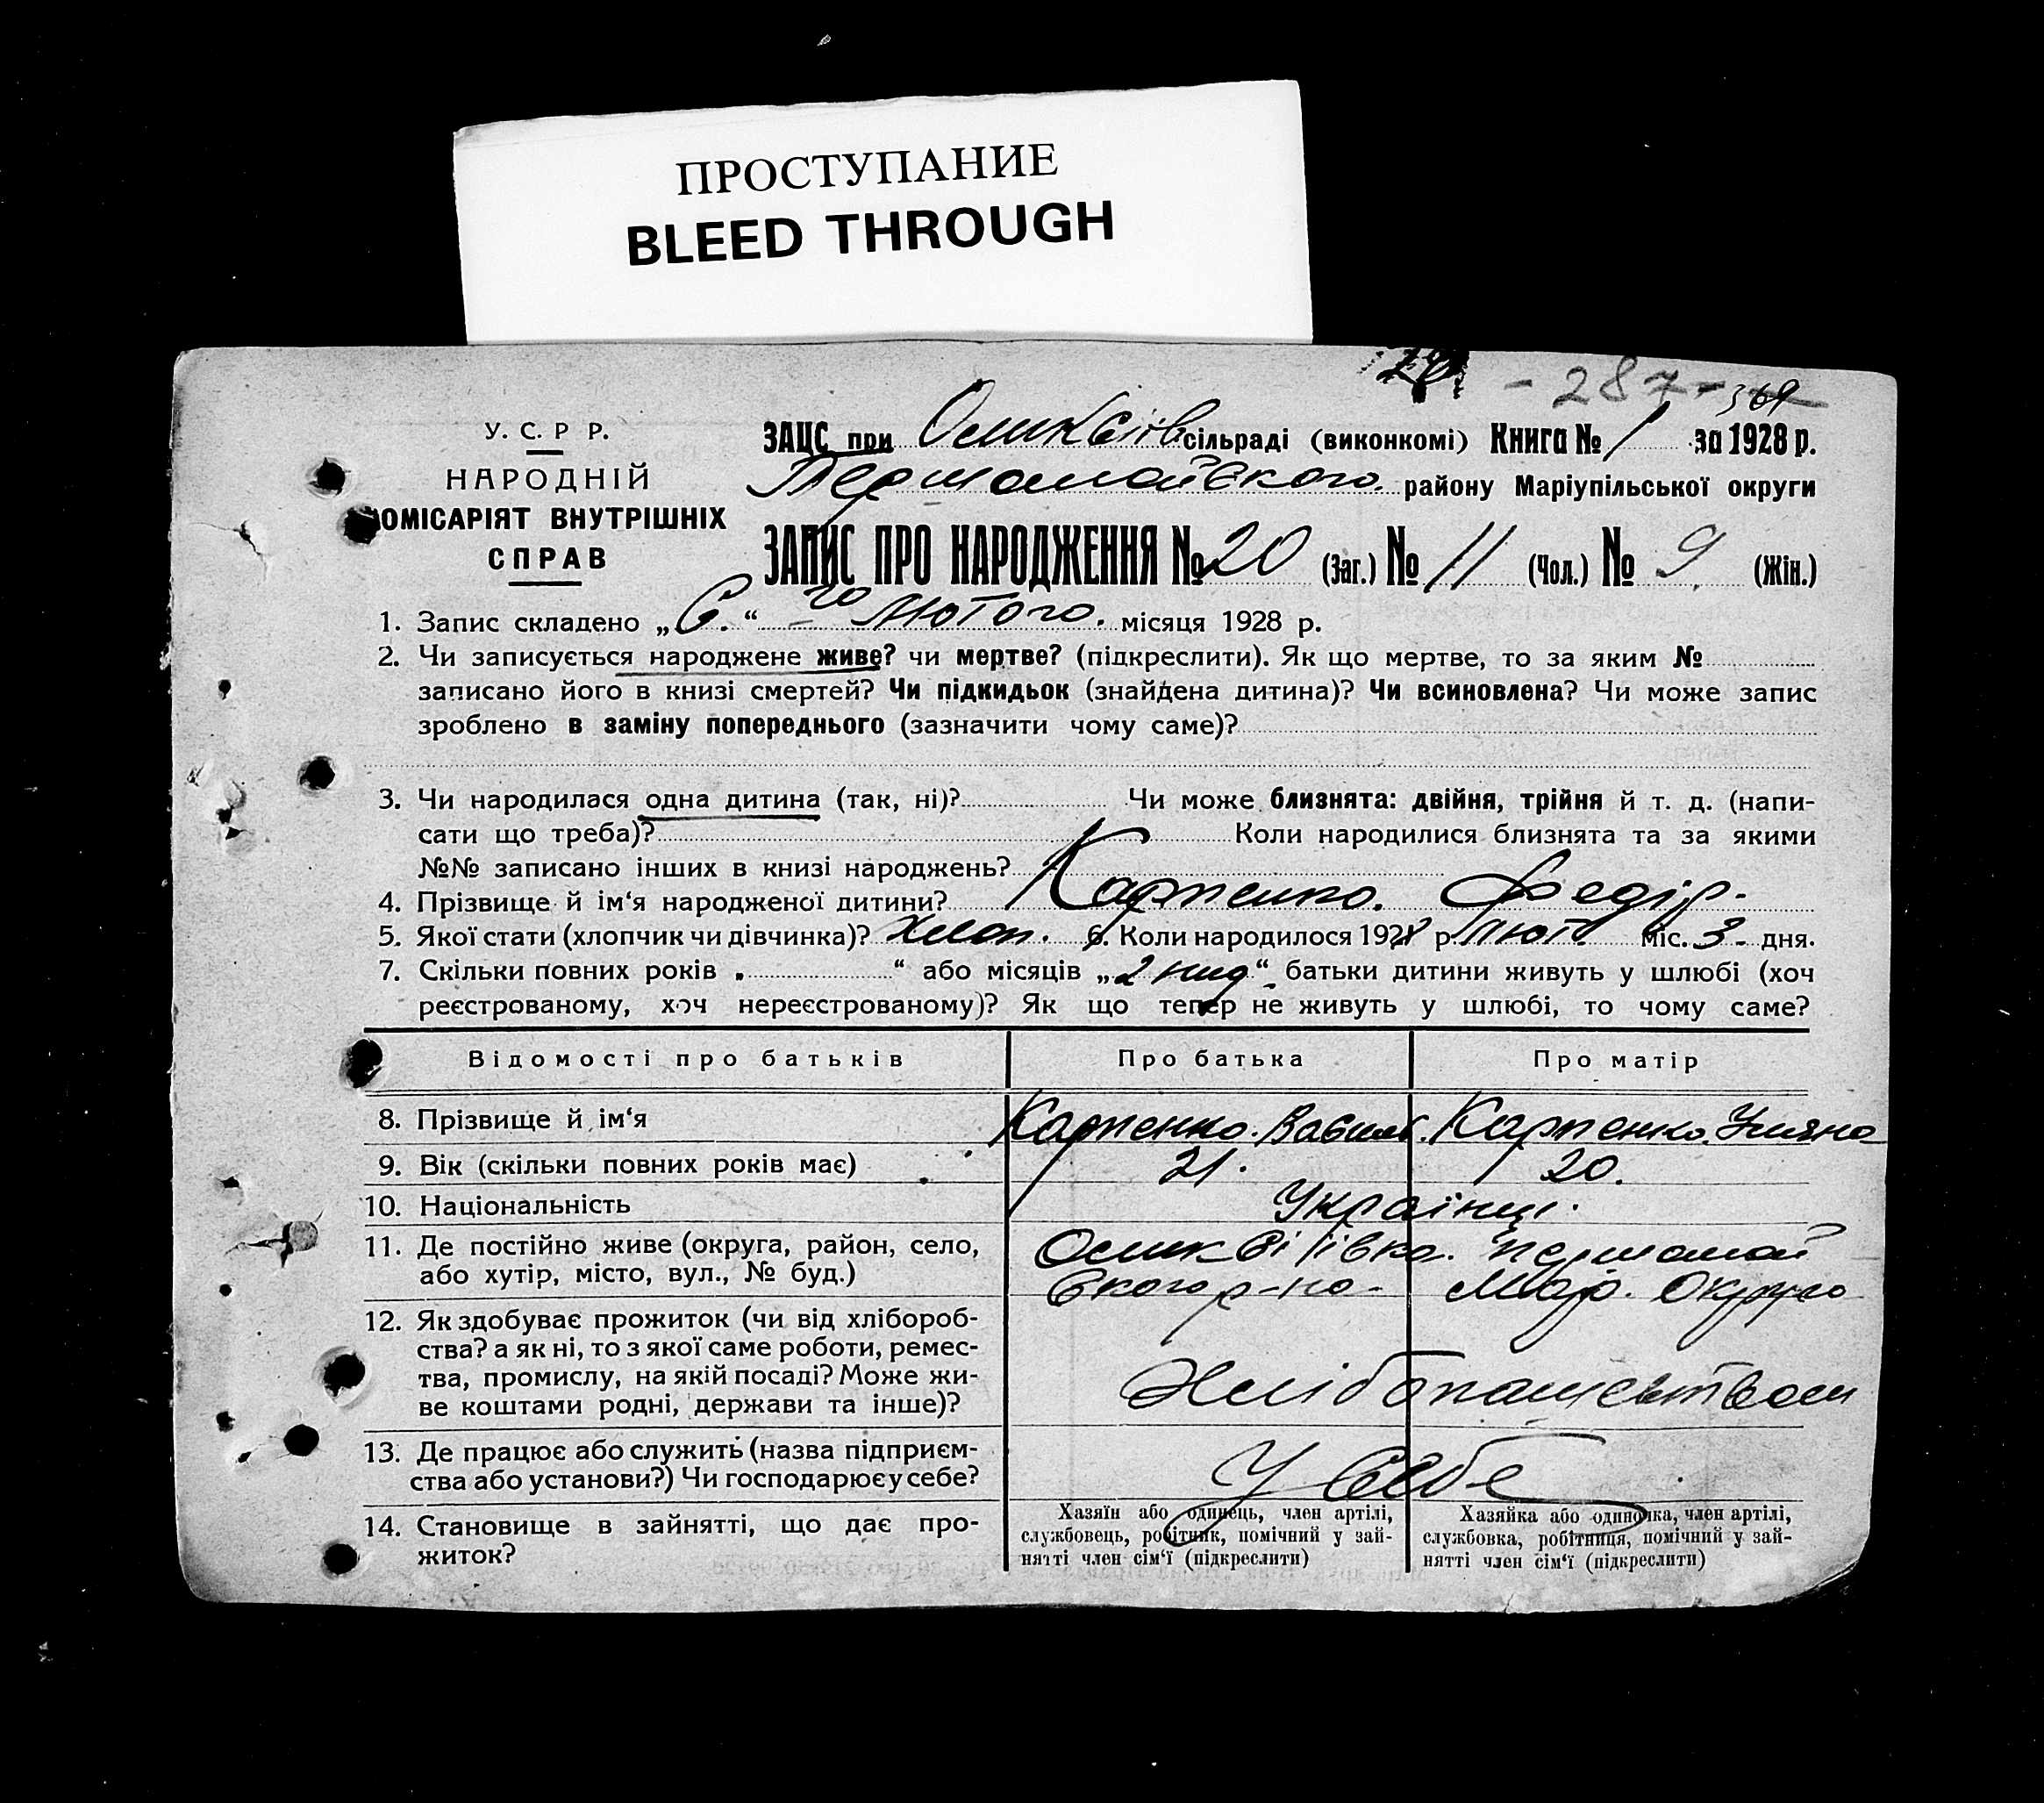 ПРОСТУПАНИЕ
BLEED THROUGH
- 287 -
369
У. С. Р Р.
НАРОДНІЙ
КОМІСАРІЯТ ВНУТРІШНІХ
СПРАВ
ЗАЦС при сільраді (виконкомі) Книга № 1 за 1928 р.
Першомайського району Маріупільської округи
ЗАПИС ПРО НАРОДЖЕННЯ № 20 (Заг.) № 11 (Чол.) № 9 (Жін.)
1. Запис складено „6.“ - го Лютого. місяця 1928 р.
2. Чи записується народжене живе? чи мертве? (підкреслити). Як що мертве, то за яким №
записано його в книзі смертей? Чи підкидьок (знайдена дитина)? Чи всиновлена? Чи може запис
зроблено в заміну попереднього (зазначити чому саме)?
3. Чи народилася одна дитина (так, ні)? Чи може близнята: двійня, трійня й т. д. (напи-
сати що треба)? Коли народилися близнята та за якими
№№ записано інших в книзі народжень?
4. Прізвище й ім‘я народженої дитини? Карпенко. Федір.
5. Якої стати (хлопчик чи дівчинка)? хлоп. 6. Коли народилося 1928 р. лют. міс. 3 - дня.
7. Скільки повних років „ “ або місяців „2 “ батьки дитини живуть у шлюбі (хоч
реєстрованому, хоч нереєстрованому)? Як що тепер не живуть у шлюбі, то чому саме?
Відомості про батьків Про батька Про матір
8. Прізвище й ім‘я Карпенко. Василь. Карпенко. Уляна
9. Вік (скільки повних років має) 21. 20.
10. Національність Українці.
11. Де постійно живе (округа, район, село, першомай
або хутір, місто, вул., № буд.) ського р-на - Мар. Округа
12. Як здобуває прожиток (чи від хлібороб-
ства? а як ні, то з якої саме роботи, ремес-
тва, промислу, на якій посаді? Може жи- Хлібопашевством
ве коштами родні, держави та інше)?
13. Де працює або служить (назва підприєм- У себе
ства або установи?) Чи господарює у себе?
14. Становище в зайнятті, що дає про-
житок?
Хазяїн або одинець, член артілі,
службовець, робітник, помічний у зай-
нятті член сім‘ї (підкреслити)
Хазяйка або одиночка, член артілі,
службовка, робітниця, помічний у зай-
нятті член сім‘ї (підкреслити)